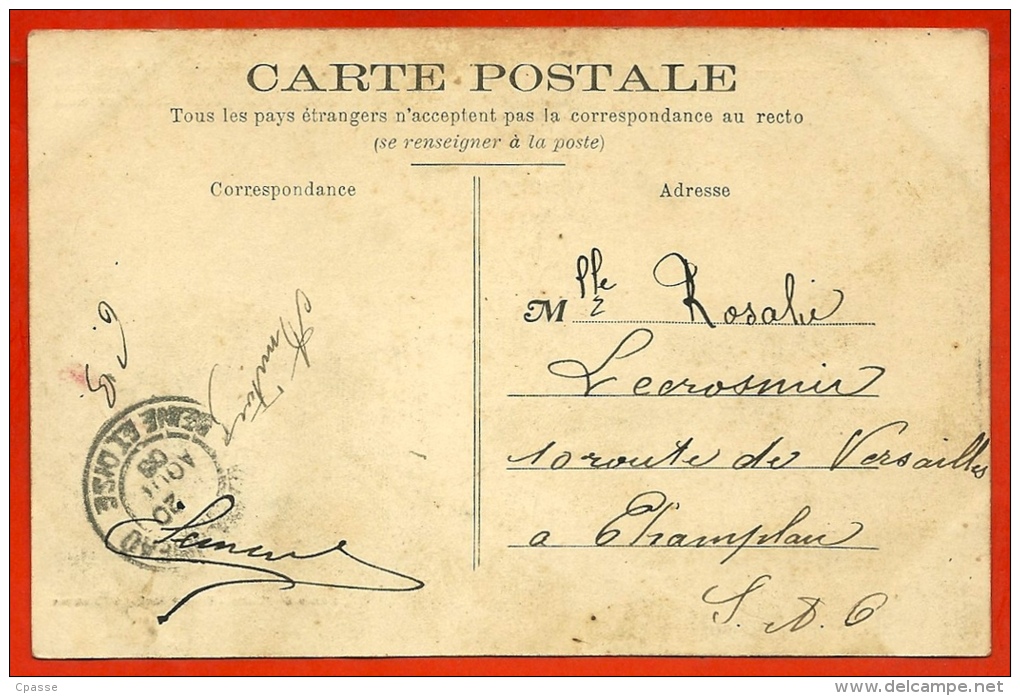 CARTE POSTALE
Tous les pays étrangers n'acceptent pas la correspondance au recto
(se renseigner à la poste)
Correspondance
Adresse
Mlle Rosalie
Lecrosnier
10 route de Versailles
a Champlan
S. A. O
SEINE ET OISE
20
AOUT
08
Cpasse
www.delcampe.net